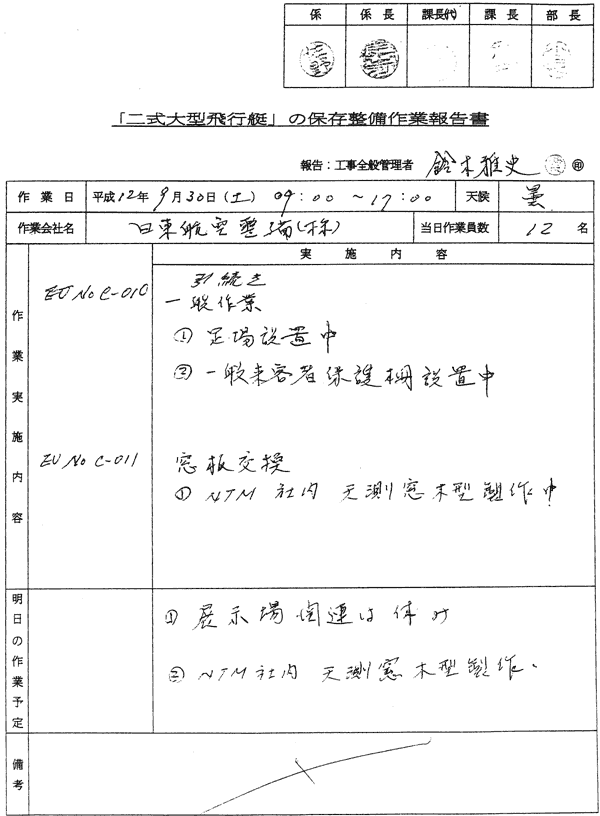 係 係長 課長(代) 課長 部長
「二式大型飛行艇」の保存整備作業報告書
報告：工事全般管理者 鈴木雅史 ㊞
作業日 平成12年 9月30日(土) 09:00 ～17:00 天候 曇
作業会社名 日東航空整備(株) 当日作業員数 12 名
実施内容
作業実施内容
EU No C-010 引続き
一般作業
① 足場設置中
② 一般来客者保護柵設置中
EU No C-011 窓板交換
① NTM 社内 天測窓木型製作中
明日の作業予定
① 展示場関連は休み
② NTM 社内 天測窓木型製作.
備考